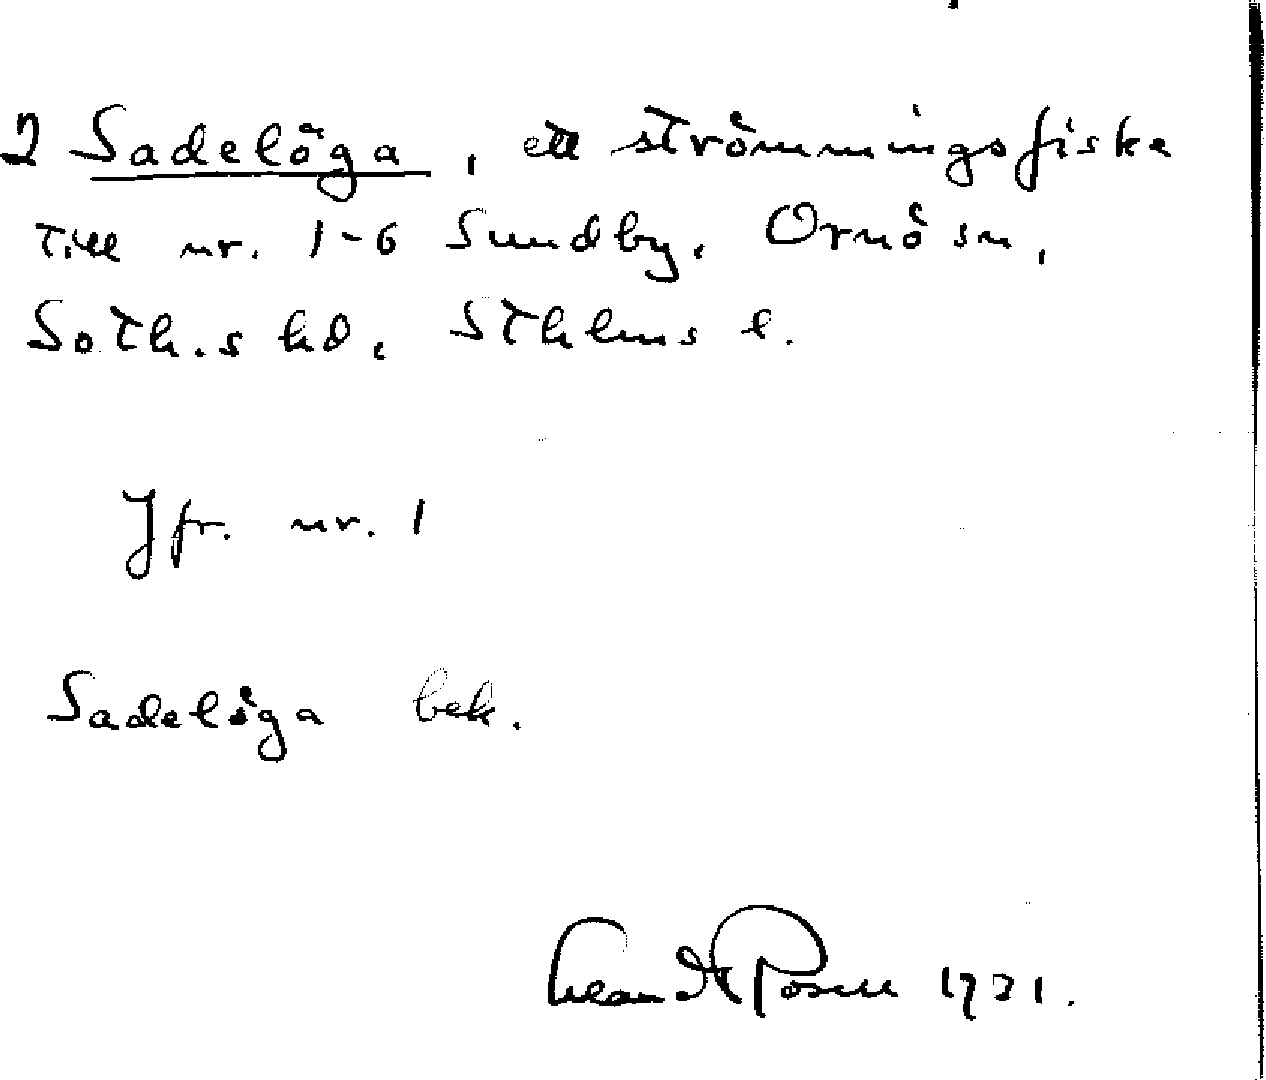 2 Sadelöga, ett strömmingsfiske
till nr. 1-6 Sundby, Ornö sn,
Soth.s hd, Sthlms l.
Jfr. nr. 1
Sadelöga bek.
1921.